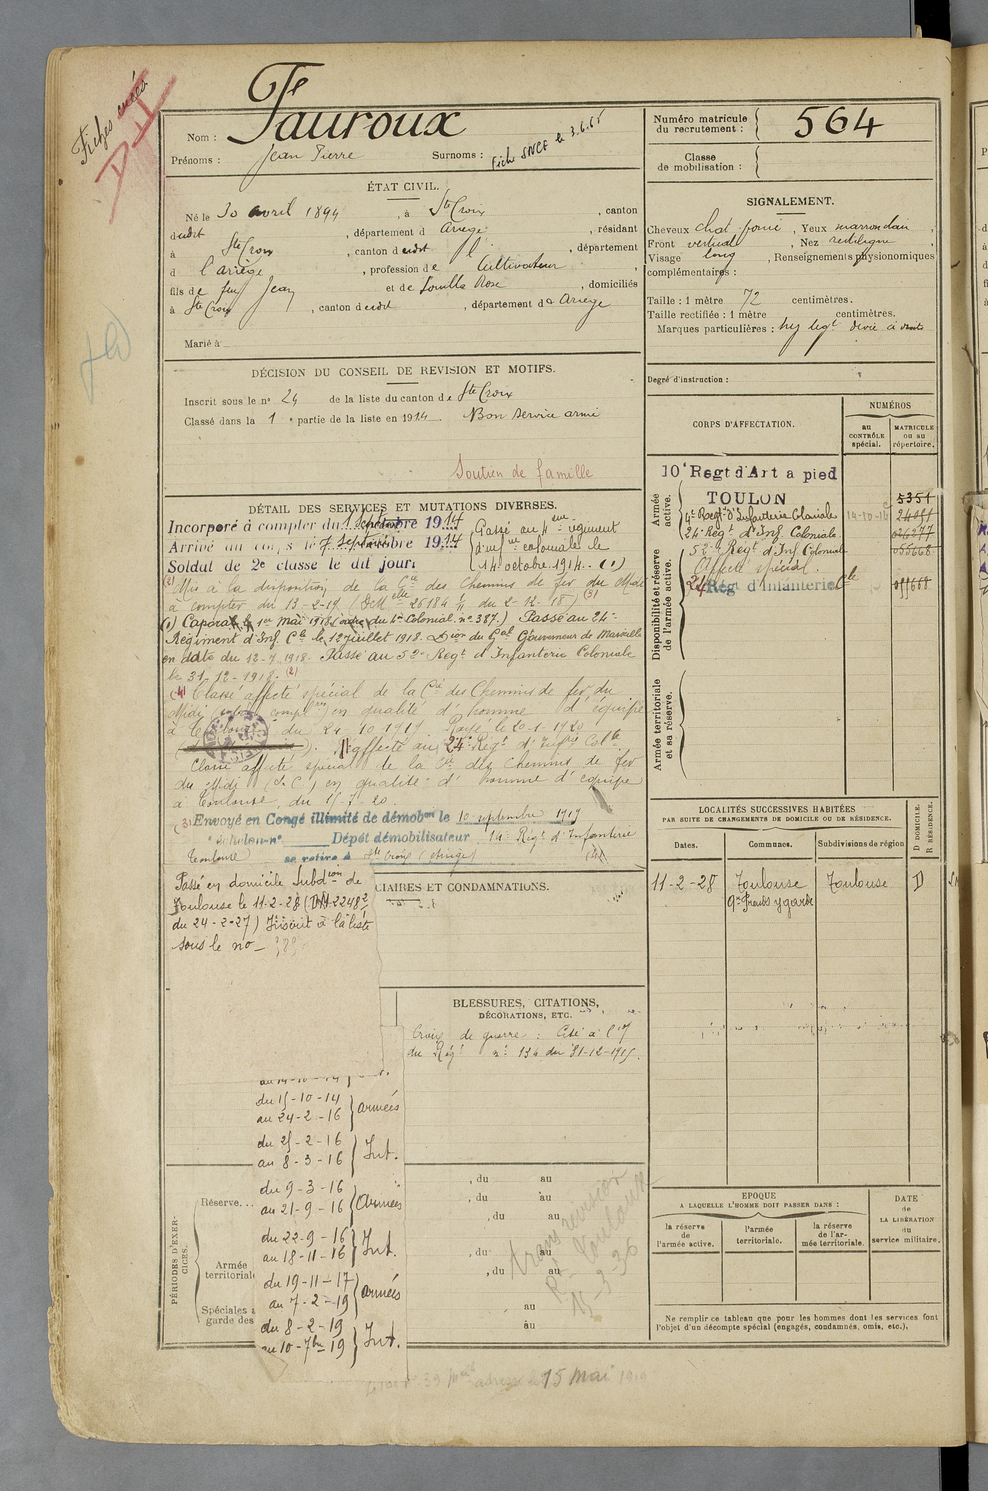 Fiches créées
D II
Nom : Fauroux
Prénoms : Jean Pierre Surnoms :
Fiche SNCF le 3.6.65
Numéro matricule du recrutement : 564
Classe de mobilisation :
ÉTAT CIVIL.
Né le 30 avril 1894, à Ste Croix, canton
dudit, département d Ariège, résidant
à Ste Croix, canton dudit, département
d l'Ariège, profession de Cultivateur
fils de feu Jean et de Rose, domiciliés
à Ste Croix, canton dudit, département de Ariège
Marié à
SIGNALEMENT.
Cheveux chat foncé, Yeux marron clair,
Front vertical, Nez rectiligne,
Visage long, Renseignements physionomiques
complémentaires :
Taille : 1 mètre 72 centimètres.
Taille rectifiée : 1 mètre centimètres.
Marques particulières : nez légt dévié à droite
Degré d'instruction :
DÉCISION DU CONSEIL DE REVISION ET MOTIFS.
Inscrit sous le no 24 de la liste du canton de Ste Croix
Classé dans la 1 e partie de la liste en 1914. Bon service armé
Soutien de famille
CORPS D'AFFECTATION.
NUMÉROS
au CONTRÔLE spécial.
MATRICULE ou au répertoire.
Armée active.
10e Regt d'Art a pied
TOULON 5351
4e Regt d'Infanterie Coloniale 14-10-16
24e Regt d'Inf. Coloniale
52e Regt d'Inf Colonial
Disponibilité et réserve de l'armée active.
Affecté spécial.
24 Régt d'infanterie Cle
Armée territoriale et sa réserve.
DÉTAIL DES SERVICES ET MUTATIONS DIVERSES.
Incorporé à compter du 1 Septembre 1914
Arrivé au corps le 7 Septembre 1914
Soldat de 2e classe le dit jour
Passé au 4eme régiment
d'inf coloniale le
14 octobre 1914. (1)
(2) Mis à la disposition de la Cie des Chemins de fer du Midi
à compter du 13-2-19 (DM 26184 du 2-12-18) (3)
(1) Caporal le 1er Mai 1918 (ordre du 4e Colonial no 387.) Passé au 24e
Régiment d'Inf. Cle le 12 juillet 1918. Don du Gal Gouverneur de Marseille
en date du 12-7-1918. Passé au 52e Regt d'Infanterie Coloniale
le 31-12-1918. (2)
(4) Classé affecté spécial de la Cie des Chemins de fer du
Midi en qualité d'homme d'équipe
à du 24-10-1919 Rayé le 20-1-1920
Réaffecté au 24e Regt d'Infie Colle
Classé affecté spécial de la Cie des Chemins de fer
du Midi en qualité d'homme d'équipe
à Toulouse, du
(3) Envoyé en Congé illimité de démobon le 10 septembre 1919
Dépôt démobilisateur 14e Regt d'Infanterie
Toulouse se retire à Ste Croix (Ariège) (4)
Passé en domicile Subdion de
Toulouse le 11-2-28
du 24-2-27) Inscrit à la liste
sous le no
CIAIRES ET CONDAMNATIONS.
BLESSURES, CITATIONS,
DÉCORATIONS, ETC.
Croix de guerre : Cité à l'
du Régt no 134 du 31-12-1915.
du 15-10-14 au 24-2-16 } armées
du 25-2-16 au 8-3-16 } Int.
du 9-3-16 au 21-9-16 } armées
du 22-9-16 au 18-11-16 } Int.
du 19-11-17 au 7-2-19 } armées
du 8-2-19 au 10-7bre 19 } Int.
PÉRIODES D'EXERCICES.
Réserve...
Armée territoriale
Spéciales a
garde des
, du au
, du au
, du au
, du au
, du au
au
au
Toulouse
15-3-36
LOCALITÉS SUCCESSIVES HABITÉES
PAR SUITE DE CHANGEMENTS DE DOMICILE OU DE RÉSIDENCE.
Dates. Communes. Subdivisions de région D DOMICILE. R RÉSIDENCE.
11-2-28 Toulouse Toulouse D
EPOQUE
A LAQUELLE L'HOMME DOIT PASSER DANS :
la réserve de l'armée active.
l'armée territoriale.
la réserve de l'armée territoriale.
DATE de LA LIBÉRATION du service militaire.
Ne remplir ce tableau que pour les hommes dont les services font
l'objet d'un décompte spécial (engagés, condamnés, omis, etc.).
adresse le 15 Mai 1919